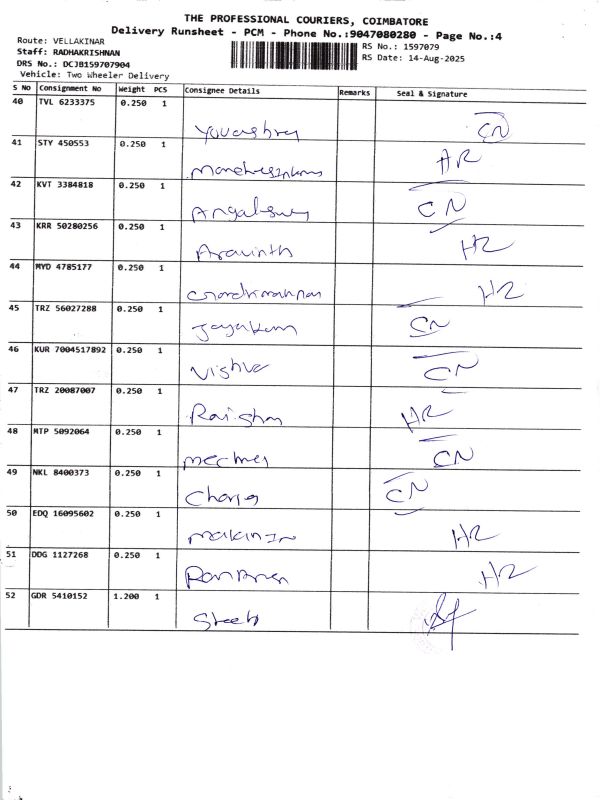 THE PROFESSIONAL COURIERS, COIMBATORE
Delivery Runsheet - PCM - Phone No.:9047080280 - Page No.:4
Route: VELLAKINAR
Staff: RADHAKRISHNAN
DRS No.: DCJB159707904
Vehicle: Two Wheeler Delivery
RS No.: 1597079
RS Date: 14-Aug-2025
S No Consignment No Weight PCS Consignee Details Remarks Seal & Signature
40 TVL 6233375 0.250 1
CN
41 STY 450553 0.250 1
HR
42 KVT 3384818 0.250 1
CN
43 KRR 50280256 0.250 1
Aravinth HR
44 MYD 4785177 0.250 1
HR
45 TRZ 56027288 0.250 1
CN
46 KUR 7004517892 0.250 1
CN
47 TRZ 20087007 0.250 1
HR
48 MTP 5092064 0.250 1
CN
49 NKL 8400373 0.250 1
CN
50 EDQ 16095602 0.250 1
HR
51 DDG 1127268 0.250 1
HR
52 GDR 5410152 1.200 1